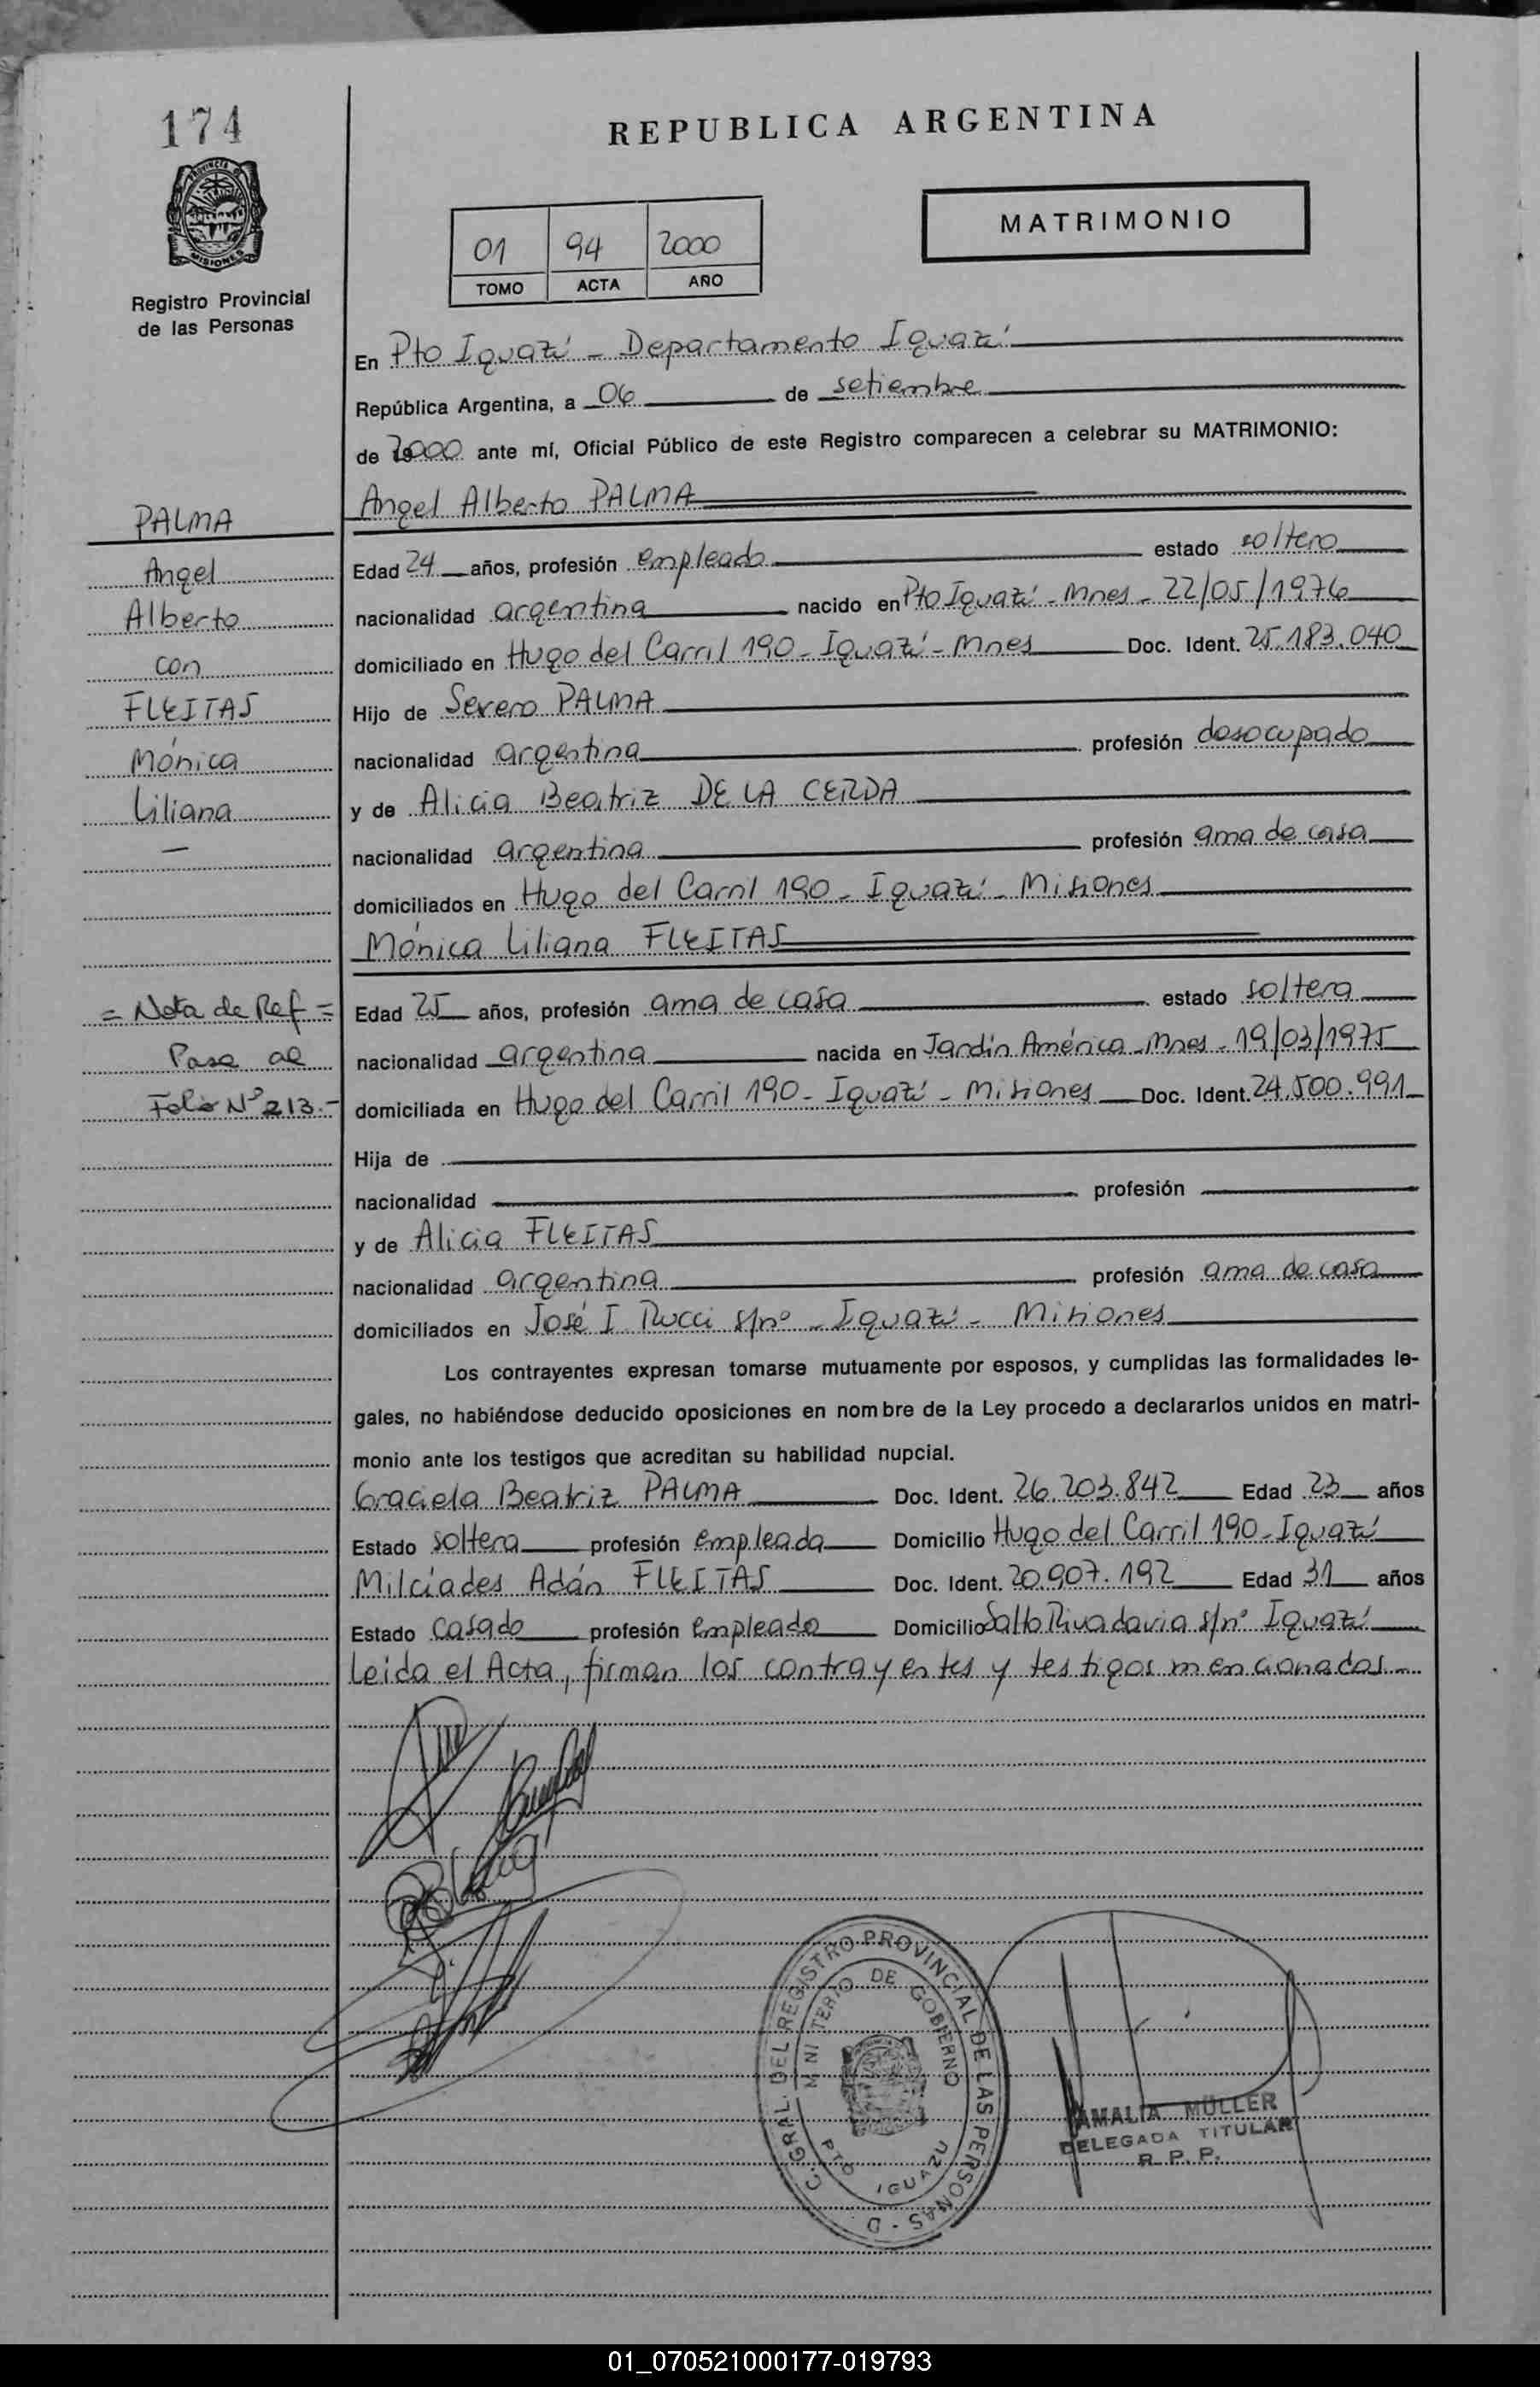 174
REPUBLICA ARGENTINA
PROVINCIA DE MISIONES
Registro Provincial
de las Personas
MATRIMONIO
01 94 2000
TOMO ACTA AÑO
En Pto Iguazú - Departamento Iguazú
República Argentina, a 06 de setiembre
de 2000 ante mí, Oficial Público de este Registro comparecen a celebrar su MATRIMONIO:
Angel Alberto PALMA
PALMA
Angel
Alberto
con
FLEITAS
Mónica
Liliana
Edad 24 años, profesión empleado estado soltero
nacionalidad argentina nacido en Pto Iguazú - Mnes - 22/05/1976
domiciliado en Hugo del Carril 190 - Iguazú - Mnes Doc. Ident. 25.183.040
Hijo de Severo PALMA
nacionalidad argentina profesión desocupado
y de Alicia Beatriz DE LA CERDA
nacionalidad argentina profesión ama de casa
domiciliados en Hugo del Carril 190 - Iguazú - Misiones
Mónica Liliana FLEITAS
= Nota de Ref =
Pase al
Folio Nº 213.-
Edad 25 años, profesión ama de casa estado soltera
nacionalidad argentina nacida en Jardín América - Mnes - 19/03/1975
domiciliada en Hugo del Carril 190 - Iguazú - Misiones Doc. Ident. 24.500.991
Hija de
nacionalidad profesión
y de Alicia FLEITAS
nacionalidad argentina profesión ama de casa
domiciliados en José I Rucci s/nº - Iguazú - Misiones
Los contrayentes expresan tomarse mutuamente por esposos, y cumplidas las formalidades le-
gales, no habiéndose deducido oposiciones en nombre de la Ley procedo a declararlos unidos en matri-
monio ante los testigos que acreditan su habilidad nupcial.
Graciela Beatriz PALMA Doc. Ident. 26.203.842 Edad 23 años
Estado soltera profesión empleada Domicilio Hugo del Carril 190 - Iguazú
Milcíades Adán FLEITAS Doc. Ident. 20.907.192 Edad 31 años
Estado casado profesión empleado Domicilio Salto Rivadavia s/nº Iguazú
Leida el Acta, firman los contrayentes y testigos mencionados -
D. C. GRAL. DEL REGISTRO PROVINCIAL DE LAS PERSONAS -
MINISTERIO DE GOBIERNO
PTO IGUAZU
AMALIA MÜLLER
DELEGADA TITULAR
R. P. P.
01_070521000177-019793